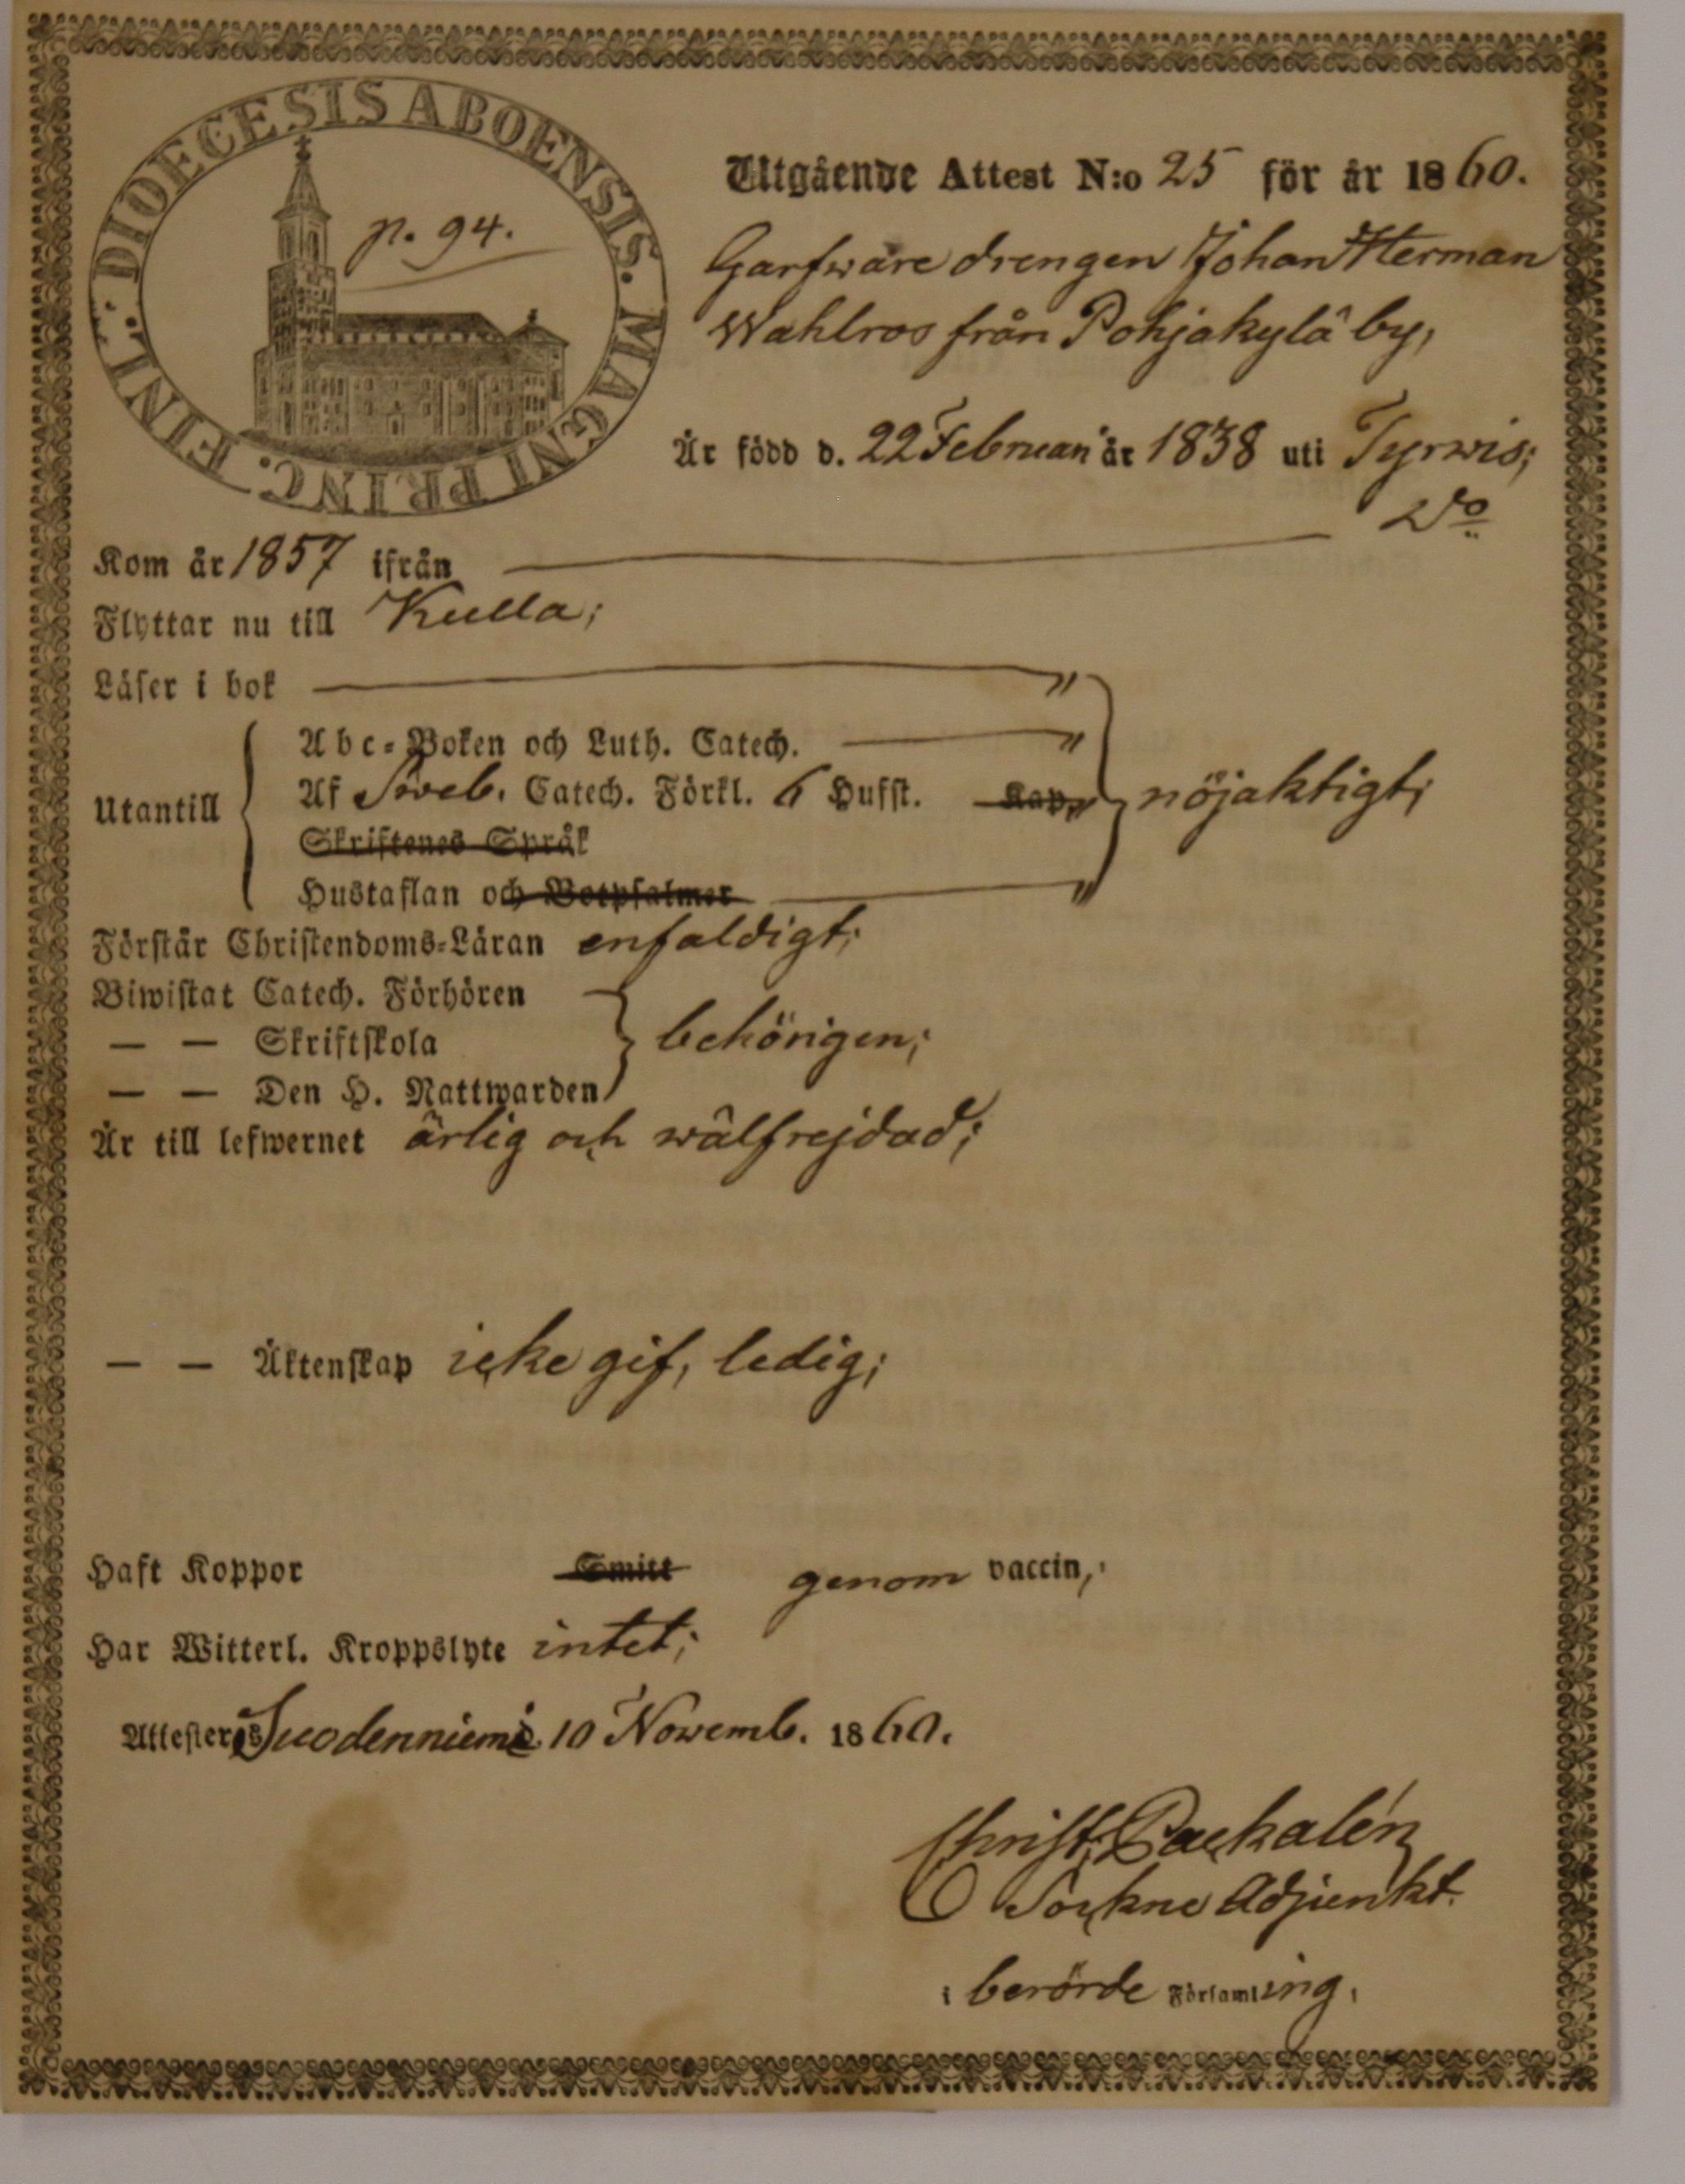 DIOECESIS ABOENSIS. MAGNI PRINC. FINL:
p. 94.
Utgående Attest N:o 25 för år 1860.
Garfware drengen Johan Herman
Wahlroos från Pohjakylä by,
Är född d. 22 Februari år 1838 uti Tyrwis;
Kom år 1857 ifrån Do
Flyttar nu till Kulla;
Läser i bok "
Utantill
Abc-Boken och Luth. Catech. "
Af Sweb. Catech. Förkl. 6 Hufst. Kap. " nöjaktigt;
Skriftenes Språk
Hustaflan och Botpsalmer "
Förstår Christendoms-Läran enfaldigt;
Biwistat Catech. Förhören
— — Skriftskola behörigen;
— — Den H. Nattwarden
Är till lefwernet ärlig och wälfrejdad;
— — Äktenskap icke gif, ledig;
Haft Koppor Smitt genom vaccin,
Har Witterl. Kroppslyte intet;
Attesteras Suodenniemi 10 Novemb. 1860.
Christ. Packalén
Sockne Adjunkt.
i berörde Församling.